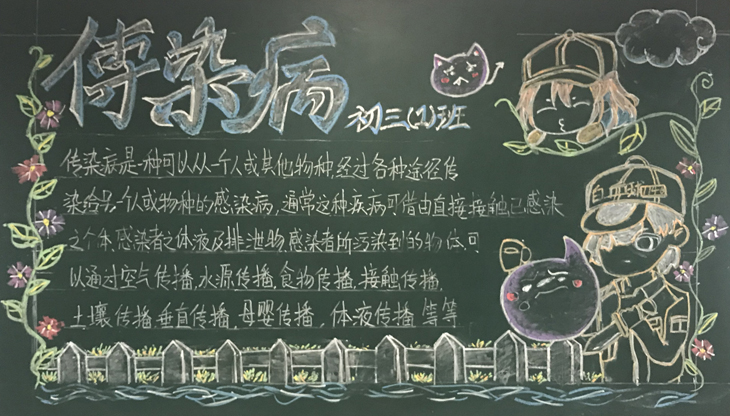 傳染病
初三(1)班
传染病是一种可以从一个人或其他物种,经过各种途径传
染给另一个人或物种的感染病,通常这种疾病可借由直接接触已感染
之个体,感染者之体液及排泄物,感染者所污染到的物体,可
以通过空气传播,水源传播,食物传播,接触传播,
土壤传播,垂直传播,母婴传播,体液传播等等